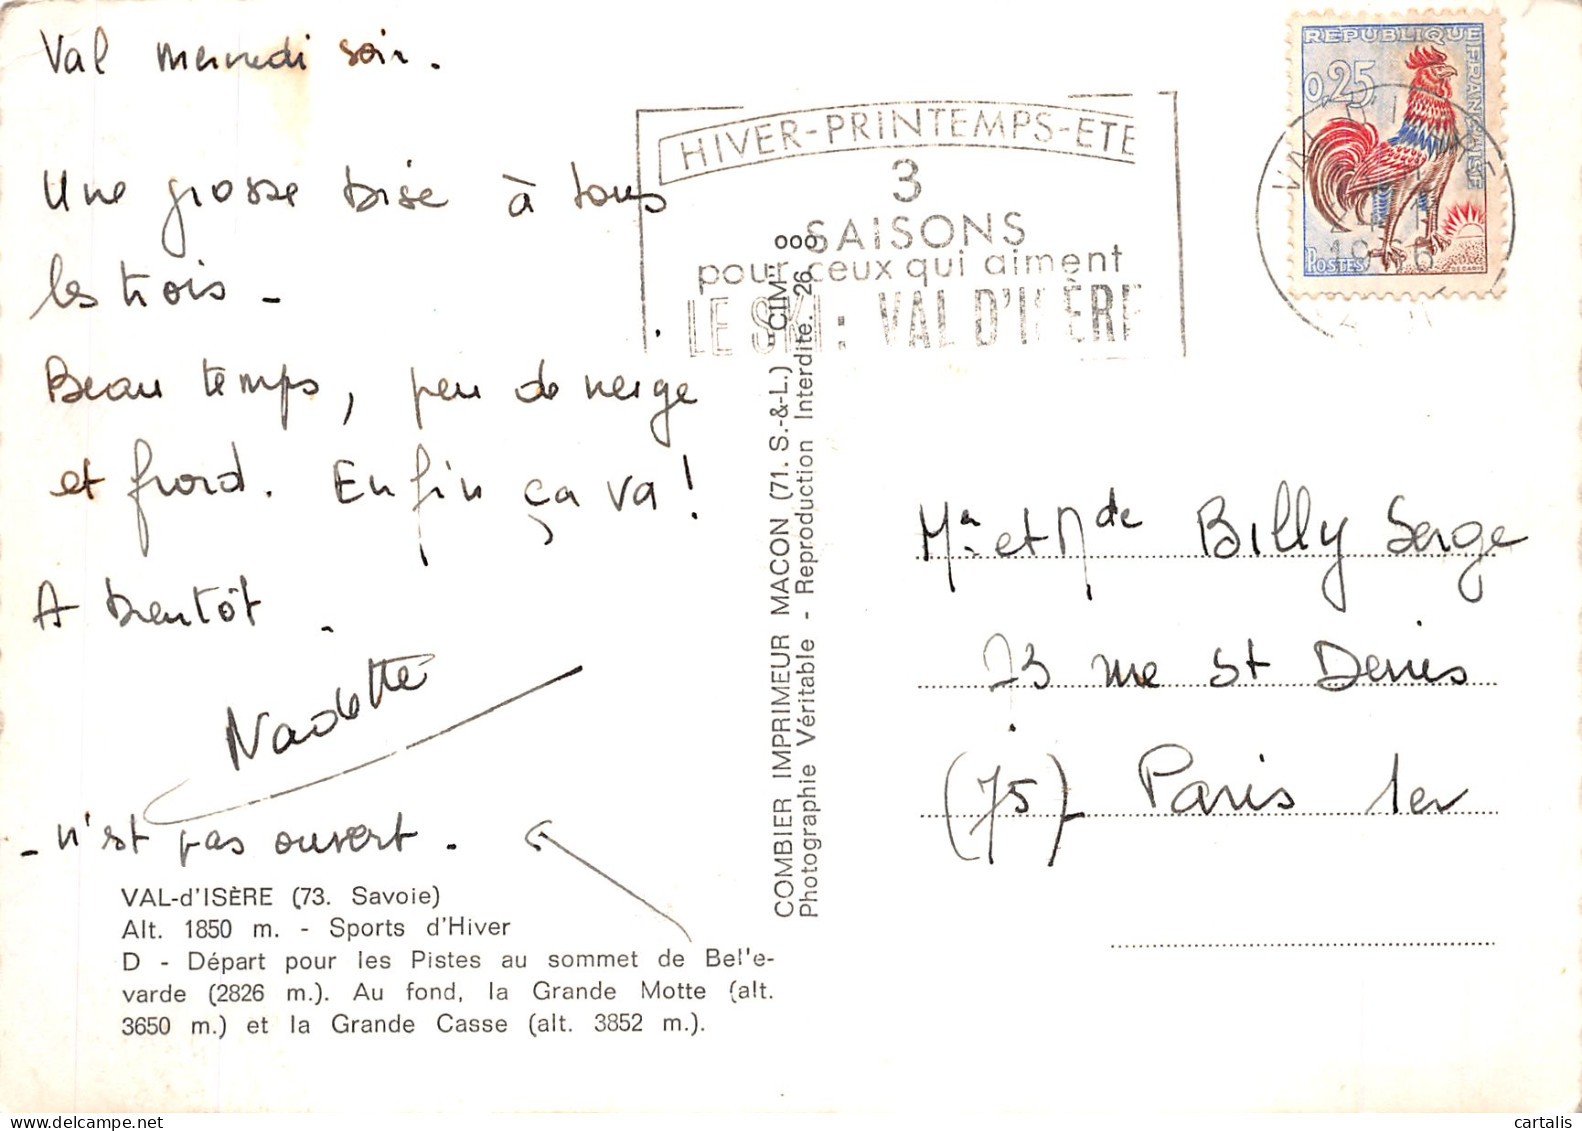 Val mercredi soir.
Une grosse bise à tous
les trois -
Beau temps, peu de neige
et froid. Enfin ça va !
A bientôt.
Nadette
- n'est pas ouvert.
VAL-d'ISÈRE (73. Savoie)
Alt. 1850 m. - Sports d'Hiver
D - Départ pour les Pistes au sommet de Bel'e-
varde (2826 m.). Au fond, la Grande Motte (alt.
3650 m.) et la Grande Casse (alt. 3852 m.).
COMBIER IMPRIMEUR MACON (71. S.-&-L.) "CIM"
Photographie Véritable - Reproduction Interdite. 26 000
HIVER-PRINTEMPS-ETE
3
SAISONS
pour ceux qui aiment
LE SKI : VAL D'ISÈRE
REPUBLIQUE FRANÇAISE
0,25
POSTES
DECARIS
Mr et Mde Billy Serge
73 rue St Denis
(75) Paris 1er
cartalis